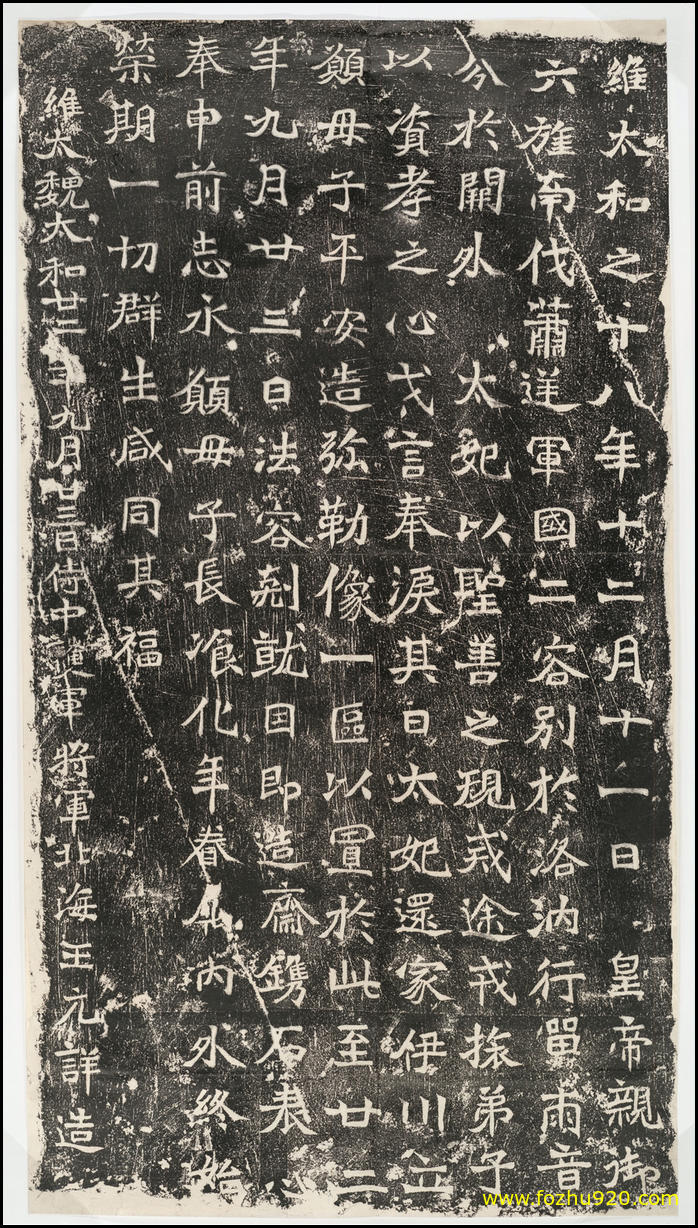 維太和之十八年十二月十一日皇帝親御
六旌南伐蕭逆軍國二容別於洛汭行留兩音
分於闕外太妃以聖善之規戒途戎旅弟子
以資孝之心戈言奉淚其日太妃還家伊川立
願母子平安造弥勒像一區以置於此至廿二
年九月廿三日法容剋就因即造齋鐫石表心
奉申前志永願母子長瓫化年眷屬內外終始
榮期一切群生咸同其福
維大魏太和廿二年九月廿三日侍中護軍將軍北海王元詳造
www.fozhu920.com